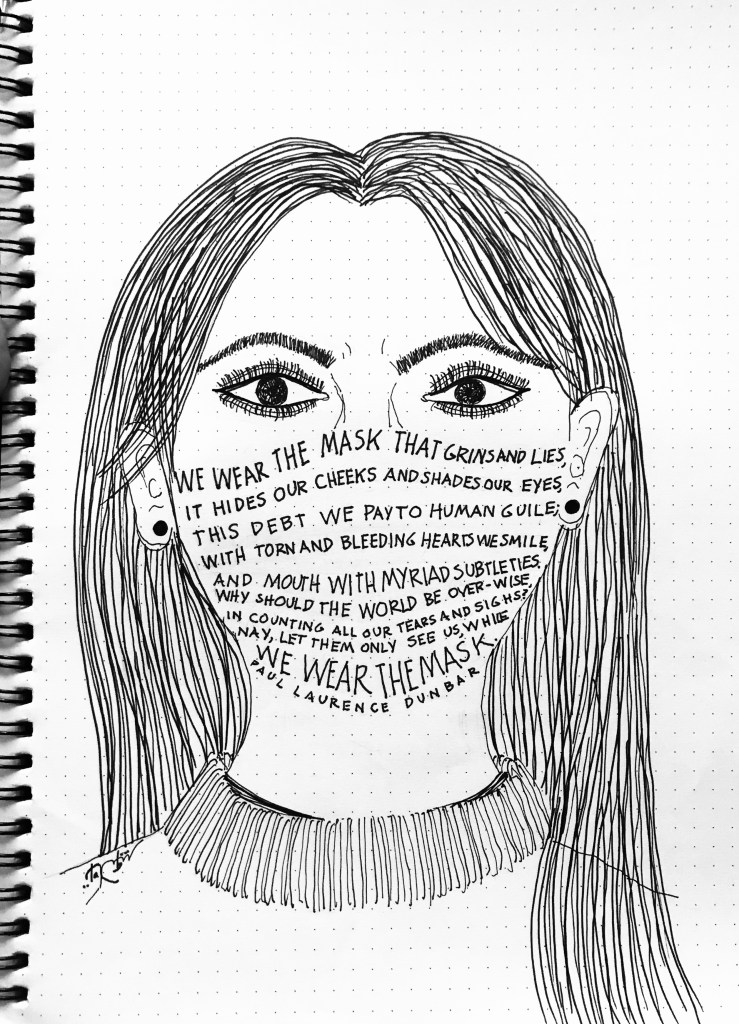 WE WEAR THE MASK THAT GRINS AND LIES,
IT HIDES OUR CHEEKS AND SHADES OUR EYES,
THIS DEBT WE PAY TO HUMAN GUILE;
WITH TORN AND BLEEDING HEARTS WE SMILE,
AND MOUTH WITH MYRIAD SUBTLETIES.
WHY SHOULD THE WORLD BE OVER-WISE,
IN COUNTING ALL OUR TEARS AND SIGHS?
NAY, LET THEM ONLY SEE US, WHILE
WE WEAR THE MASK.
PAUL LAURENCE DUNBAR